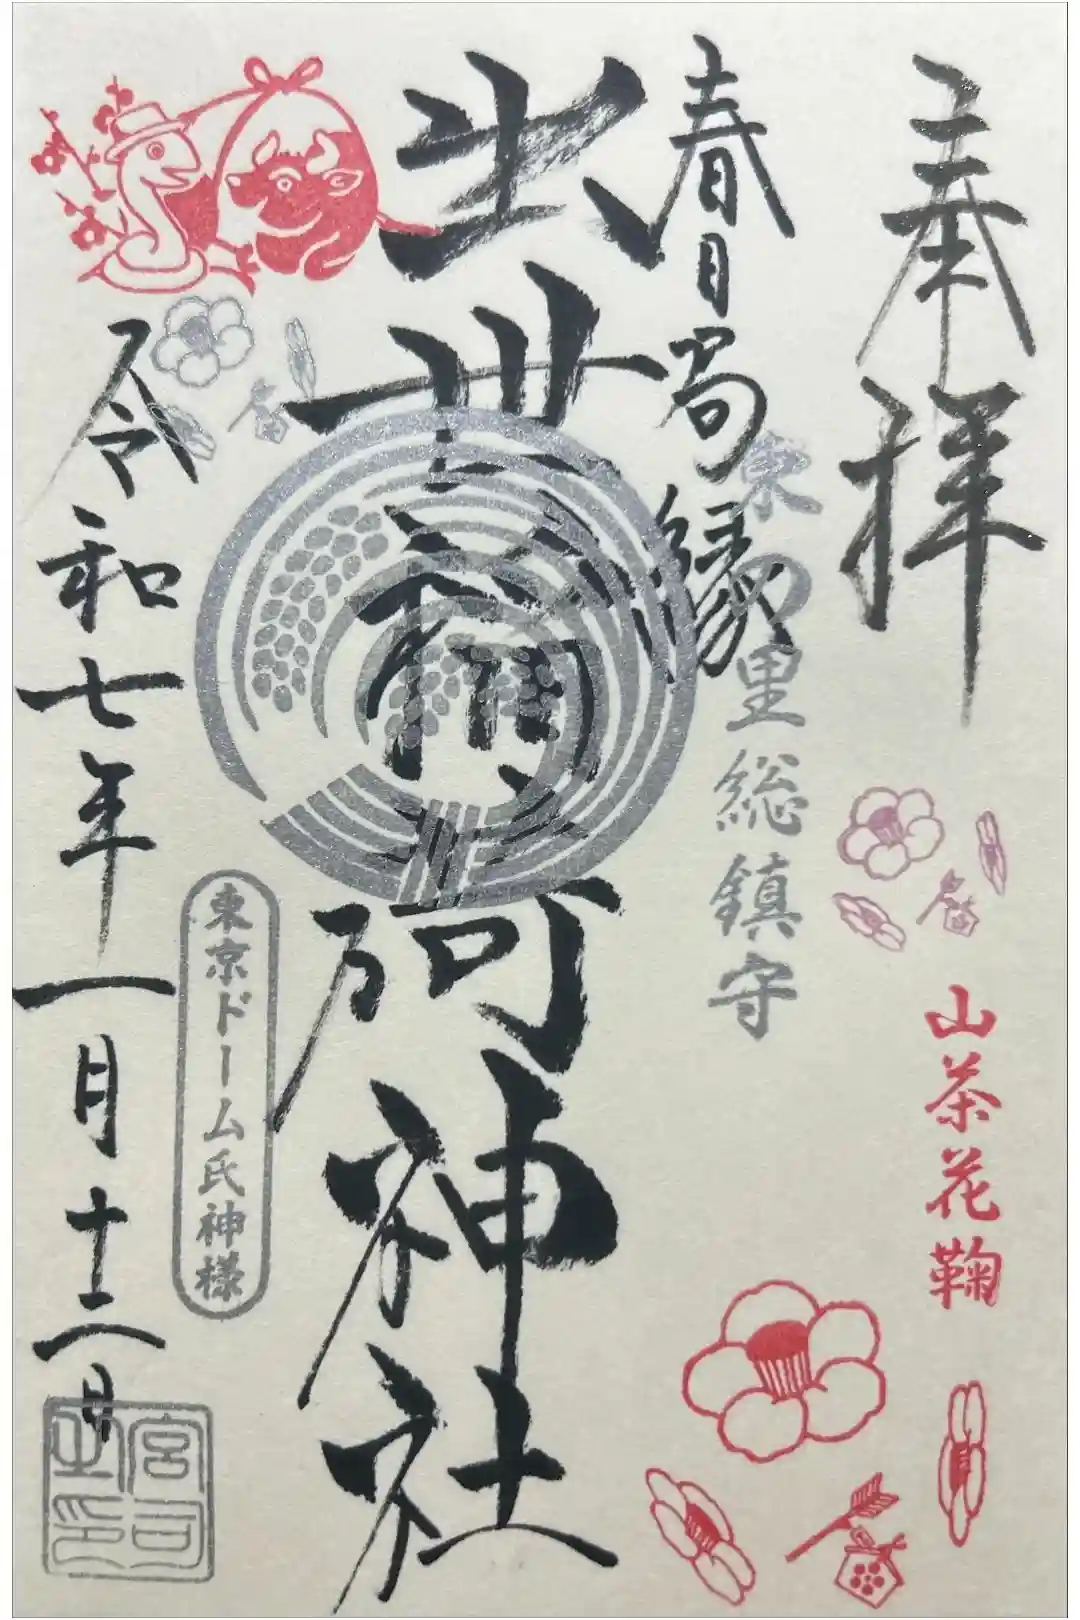 奉拝
山茶花鞠
春日局縁
の里総鎮守
出世稲荷神社
東京ドーム氏神様
令和七年一月十二日
宮司之印